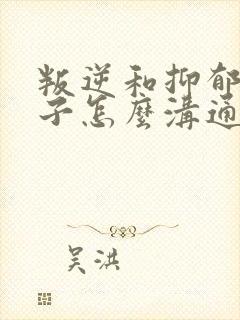 叛逆和抑郁
子怎麼溝通
吴洪